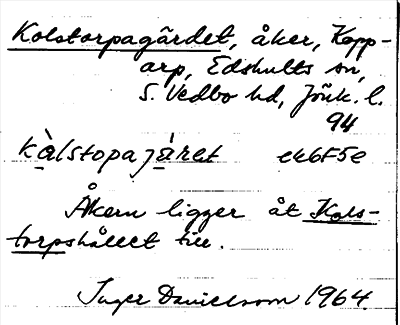 Kolstorpagärdet, åker, Kopp-
arp, Edshults sn,
S. Vedbo hd, Jönk. l.
94
kàlstopajáret ek6F5e
Åkern ligger åt Kols-
torpshållet till.
Inger Danielsson 1964.